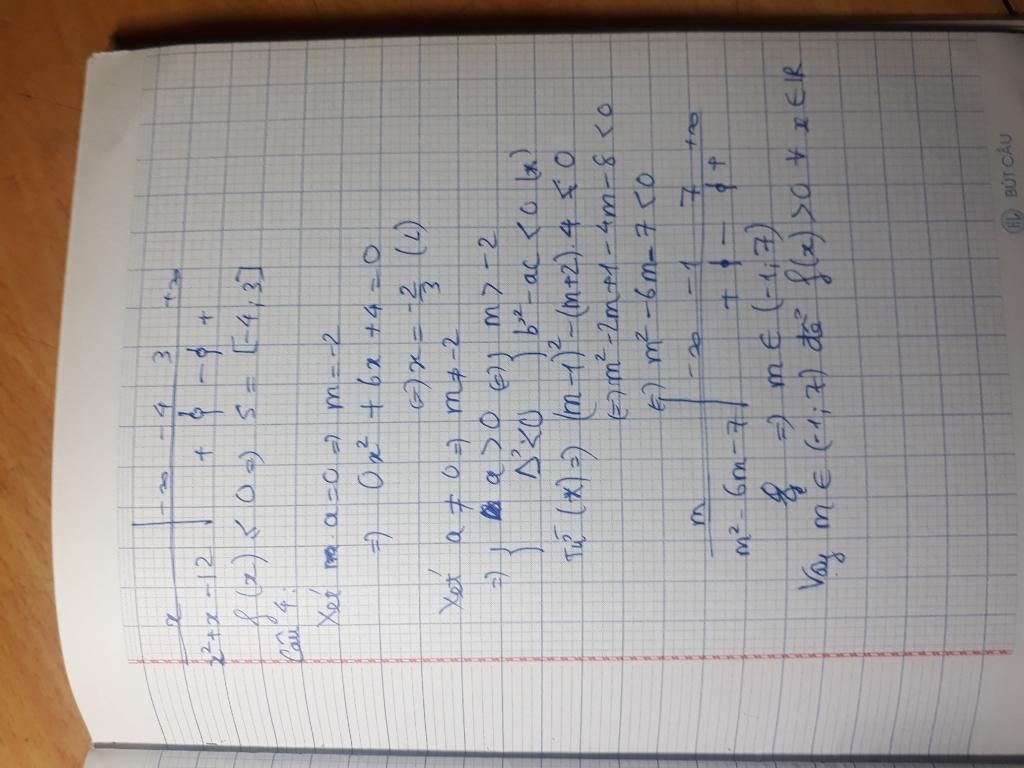 x | -∞ -4 3 +∞
x²+x-12 | + 0 - 0 +
f(x) ≤ 0 => S = [-4, 3]
Câu 4:
Xét a = 0 => m = -2
=> 0x² + 6x + 4 = 0
(=) x = -2/3 (L)
Xét a ≠ 0 => m ≠ -2
=> { a > 0 (=) { m > -2
Δ' < 0 b'² - ac < 0 (x)
Từ (x) => (m-1)² - (m+2).4 ≤ 0
(=) m² - 2m + 1 - 4m - 8 < 0
(=) m² - 6m - 7 < 0
m | -∞ -1 7 +∞
m² - 6m - 7 | + 0 - 0 +
=> m ∈ (-1; 7)
Vậy m ∈ (-1; 7) để f(x) > 0 ∀ x ∈ ℝ
BÚT CÂU